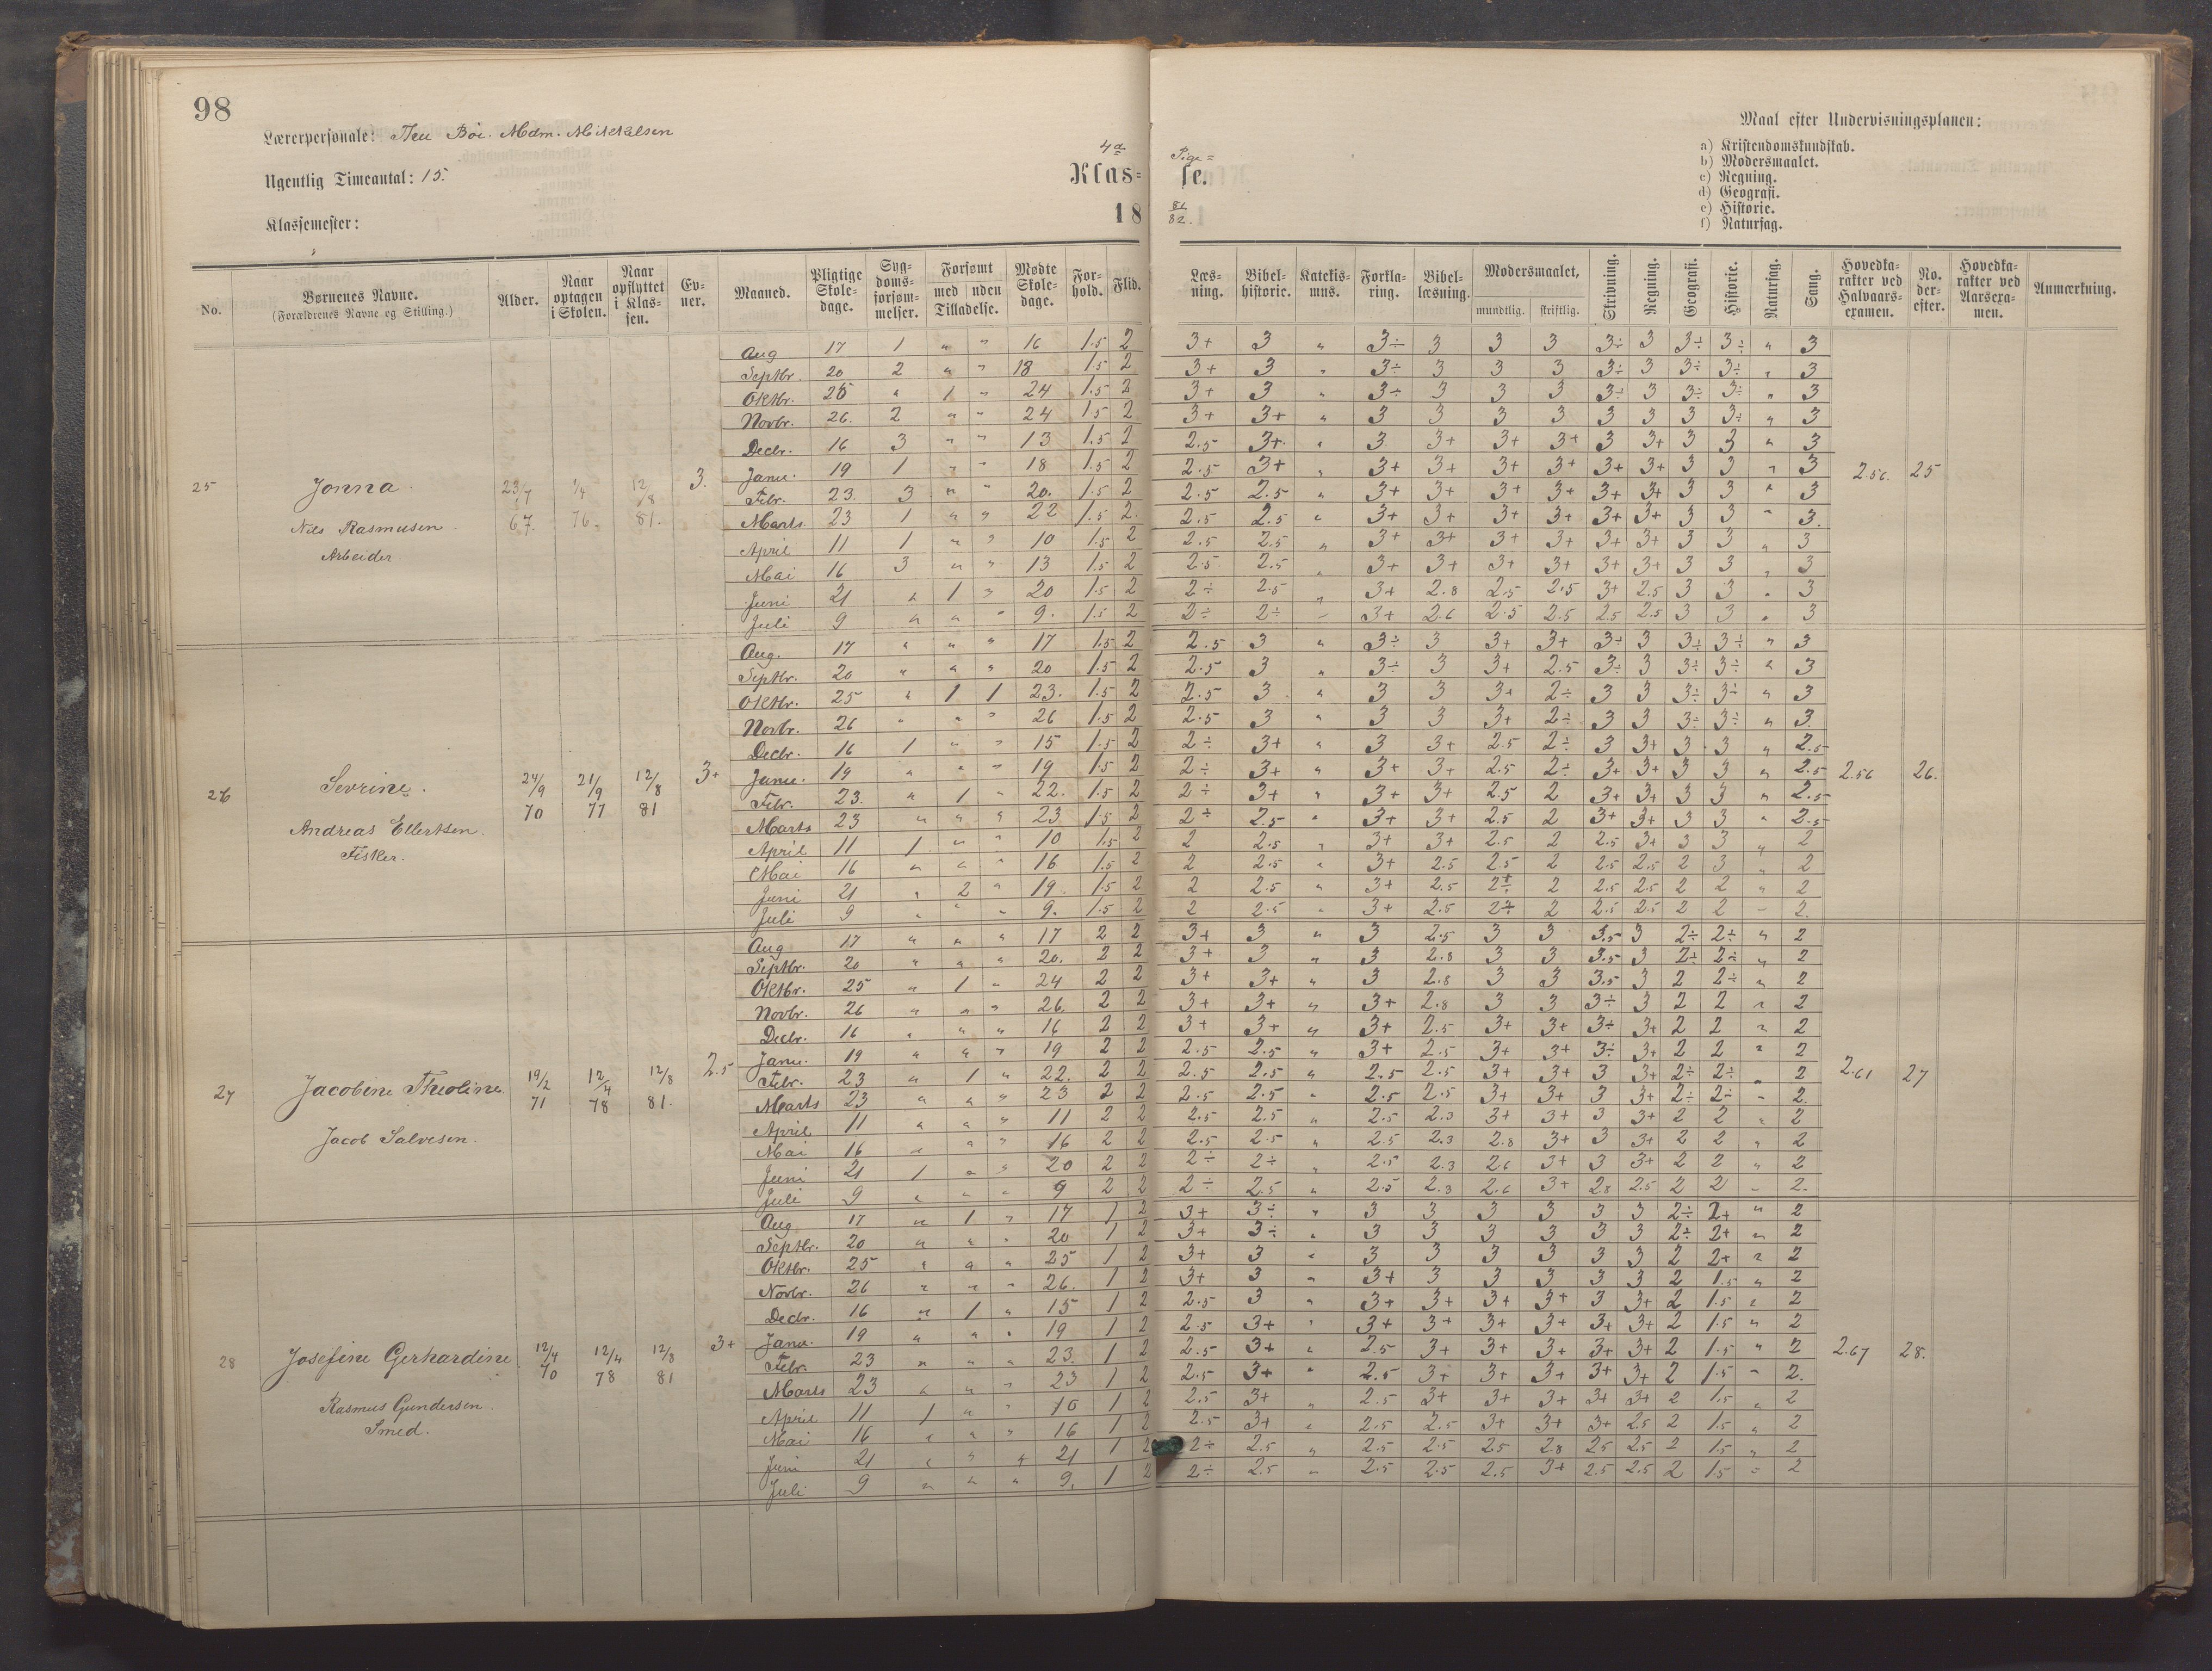 98
Lærerpersonale: Thu Böe. Mdm. Mikkelsen
Ugentlig Timeantal: 15.
Klassemester:
4de Pige=
Klas=se.
18 81/82.
Maal efter Undervisningsplanen:
a) Kristendomskundskab.
b) Modersmaalet.
c) Regning.
d) Geografi.
e) Historie.
f) Naturfag.
No. | Børnenes Navne. (Forældrenes Navne og Stilling.) | Alder. | Naar optagen i Skolen. | Naar opflyttet i Klassen. | Evner. | Maaned. | Pligtige Skoledage. | Sygdomsforsømmelser. | Forsømt med Tilladelse. | uden Tilladelse. | Mødte Skoledage. | Forhold. | Flid. | Læsning. | Bibelhistorie. | Katekismus. | Forklaring. | Bibellæsning. | Modersmaalet, mundtlig. | skriftlig. | Skrivning. | Regning. | Geografi. | Historie. | Naturfag. | Sang. | Hovedkarakter ved Halvaarsexamen. | No. derefter. | Hovedkarakter ved Aarsexamen. | Anmærkning.
25 Jonna. 23/7 67. 1/4 76. 12/8 81. 3. 2.56. 25
Nils Rasmusen
Arbeider
Aug 17 1 " " 16 1.5 2 3+ 3 " 3÷ 3 3 3 3÷ 3 3÷ 3÷ " 3
Septbr. 20 2 " " 18 1.5 2 3+ 3 " 3÷ 3 3 3 3÷ 3 3÷ 3÷ " 3
Oktbr. 25 " 1 " 24 1.5 2 3+ 3 " 3÷ 3 3 3 3÷ 3 3÷ 3÷ " 3
Novbr. 26. 2 " " 24 1.5 2 3+ 3+ " 3 3 3 3 3 3 3 3÷ " 3
Decbr. 16 3 " " 13 1.5 2 2.5 3+ " 3 3+ 3+ 3+ 3 3+ 3 3 " 3
Janu. 19 1 " " 18 1.5 2 2.5 3+ " 3+ 3+ 3+ 3+ 3+ 3+ 3 3 " 3
Febr. 23. 3 " " 20. 1.5 2 2.5 2.5 " 3+ 3+ 3+ 3+ 3+ 3+ 3 3 " 3
Marts 23 1 " " 22 1.5 2. 2.5 2.5 " 3+ 3+ 3+ 3+ 3+ 3+ 3 3 " 3.
April 11 1 " " 10 1.5 2 2.5 2.5 " 3+ 3+ 3+ 3+ 3+ 3+ 3 3 " 3
Mai 16 3 " " 13 1.5 2 2.5 2.5 " 3+ 3+ 3+ 3+ 3+ 3+ 3 3 " 3
Juni 21 " 1 " 20 1.5 2 2÷ 2.5 " 3+ 2.8 2.5 2.5 3+ 2.5 3 3 " 3
Juli 9 " " " 9. 1.5 2 2÷ 2÷ " 3+ 2.6 2.5 2.5 2.5 2.5 3 3 " 3
26 Sevrine. 24/9 70 21/9 77 12/8 81 3+ 2.56 26.
Andreas Ellertsen.
Fisker.
Aug. 17 " " " 17 1.5 2 2.5 3 " 3÷ 3 3+ 3+ 3÷ 3 3÷ 3÷ " 3
Septbr. 20 " " " 20 1.5 2 2.5 3 " 3÷ 3 3+ 2.5 3÷ 3 3÷ 3÷ " 3
Oktbr. 25 " 1 1 23. 1.5 2 2.5 3 " 3 3 3+ 2÷ 3 3 3÷ 3÷ " 3
Novbr. 26 " " " 26 1.5 2 2.5 3 " 3 3 3+ 2÷ 3 3 3÷ 3÷ " 3
Decbr. 16 1 " " 15 1.5 2 2÷ 3+ " 3 3+ 2.5 2÷ 3 3+ 3 3 " 2.5
Janu. 19 " " " 19 1.5 2 2÷ 3+ " 3+ 3+ 2.5 2÷ 3+ 3+ 3 3 " 2.5
Febr. 23. " 1 " 22. 1.5 2 2÷ 3+ " 3+ 3+ 2.5 2 3+ 3+ 3 3 " 2.5
Marts 23 " " " 23 1.5 2 2÷ 2.5 " 3+ 3+ 2.5 2 3+ 3+ 3 3 " 2.5
April 11 1 " " 10 1.5 2 2 2.5 " 3+ 3+ 2.5 2 2.5 3+ 3 3 " 2
Mai 16 " " " 16 1.5 2 2 2.5 " 3+ 2.5 2.5 2 2.5 2.5 2 3 " 2
Juni 21 " 2 " 19. 1.5 2 2 2.5 " 3+ 2.5 2 2.5 2.5 2 2 " 2
Juli 9 " " " 9. 1.5 2 2 2.5 " 3+ 2.5 2 2.5 2.5 2 2 " 2.
27 Jacobine Theoline 19/2 71 12/4 78 12/8 81. 2.5 2.61 27
Jacob Salvesen.
Aug 17 " " " 17 2 2 3+ 3 " 3 2.5 3 3 3.5 3 2÷ 2÷ " 2
Septbr. 20 " " " 20. 2 2 3+ 3 " 3 2.8 3 3 3.5 3 2÷ 2÷ " 2
Oktbr. 25 " 1 " 24 2 2 3+ 3+ " 3 2.8 3 3 3.5 3 2 2÷ " 2
Novbr. 26 " " " 26. 2 2 3+ 3+ " 3+ 2.8 3 3 3÷ 3 2 2 " 2
Decbr. 16 " " " 16 2 2 3+ 3+ " 3+ 2.5 3+ 3+ 3÷ 3+ 2 2 " 2
Janu. 19 " " " 19 2 2 2.5 2.5 " 3+ 2.5 3+ 3+ 3÷ 3+ 2 2 " 2
Febr. 23 " 1 " 22. 2 2 2.5 2.5 " 2.5 2.5 3+ 3+ 3 3+ 2÷ 2÷ " 2
Marts 23 " " " 23 2 2 2.5 2.5 " 2.5 2.5 3+ 3+ 3 3+ 2÷ 2÷ " 2.
April 11 " " " 11 2 2 2.5 2.5 " 2.5 2.3 3+ 3+ 3 3+ 2 2 " 2
Mai 16 " " " 16 2 2 2.5 2.5 " 2.5 2.3 2.8 3+ 3 3+ 2 2 " 2
Juni 21 1 " " 20 2 2 2÷ 2÷ " 2.5 2.3 2.6 3+ 3 3+ 2 2 " 2
Juli 9 " " " 9 2 2 2÷ 2.5 " 2.5 2.3 2.6 3+ 2.8 2.5 2 2 " 2.
28 Josefine Gerhardine 12/4 70 12/4 78 12/8 81 3+ 2.67 28.
Rasmus Gundersen.
Smed.
Aug 17 " 1 " 17 1 2 3+ 3÷ " 3 3 3 3 3 3 2÷ 2+ " 2
Septbr. 20 " " " 20 1 2 3+ 3÷ " 3 3 3 3 3 3 2÷ 2+ " 2
Oktbr. 25 " " " 25 1 2 3+ 3 " 3 3 3 3 3 3 2 2+ " 2
Novbr. 26 " " " 26. 1 2 3+ 3 " 3+ 3 3 3 3 3 2 1.5 " 2
Decbr. 16 " 1 " 15 1 2 2.5 3 " 3+ 3+ 3+ 3+ 3 3+ 2 1.5 " 2
Janu. 19 " " " 19 1 2 2.5 3+ " 3+ 3+ 3+ 3+ 3+ 3+ 2 1.5 " 2
Febr. 23 " " " 23. 1 2 2.5 3+ " 2.5 3+ 3+ 3+ 3+ 3+ 2 1.5 " 2
Marts 23 " " " 23 1 2 2.5 3+ " 2.5 3+ 3+ 3+ 3+ 3+ 2 1.5 " 2.
April 11 1 " " 10 1 2 2.5 3+ " 2.5 3+ 3+ 3+ 3+ 3+ 2 1.5 " 2
Mai 16 " " " 16 1 2 2.5 3+ " 2.5 2.5 3+ 3+ 3+ 2.5 2 1.5 " 2
Juni 21 " " " 21 1 2 2÷ 2.5 " 2.5 2.5 2.5 2.8 2.5 2.5 2 1.5 " 2
Juli 9 " " " 9. 1 2 2÷ 2.5 " 2.5 2.5 2.5 3+ 2.5 2.5 2 1.5 " 2